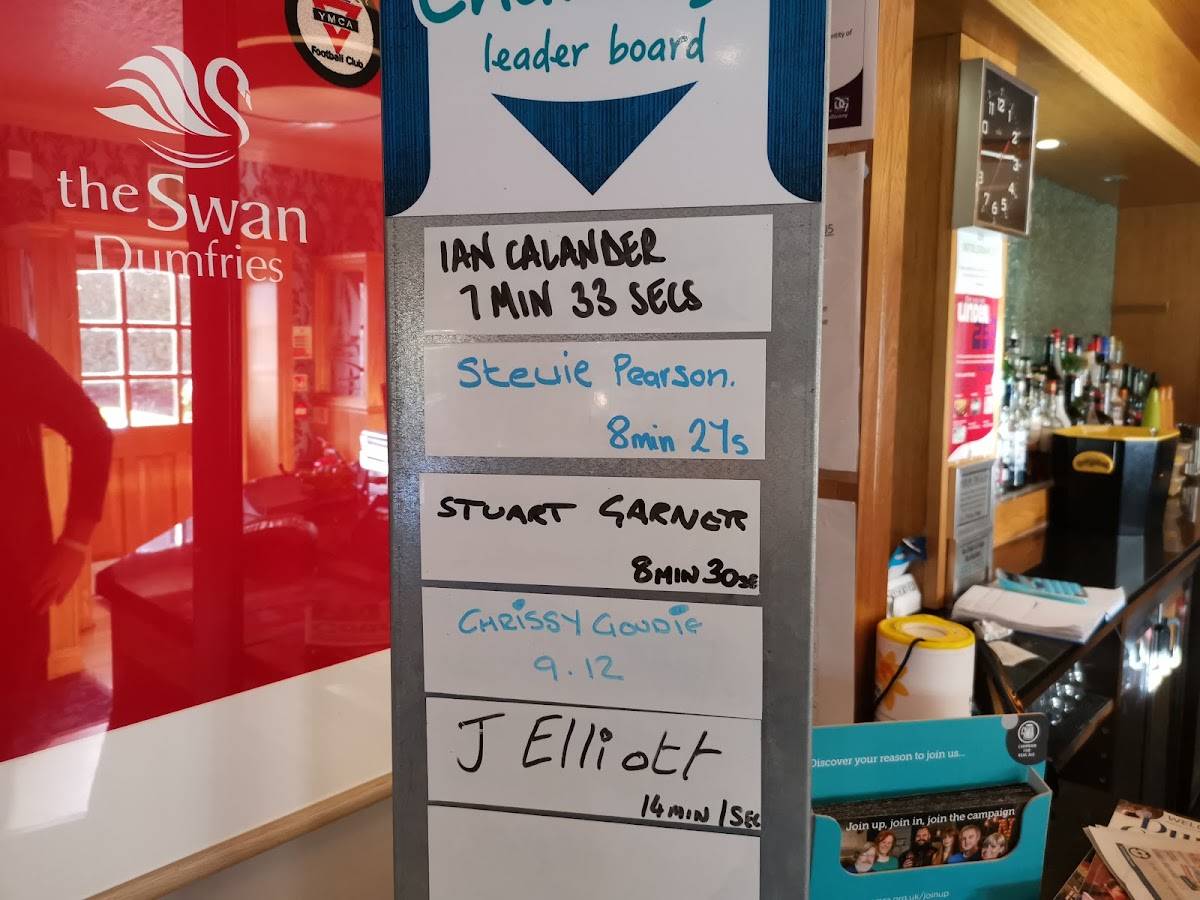 YMCA
Football Club
the Swan
Dumfries
leader board
IAN CALANDER
7 MIN 33 SECS
Stevie Pearson.
8min 27s
STUART GARNER
8 MIN 30
CHRISSY GOUDIE
9.12
J Elliott
14 MIN 1 SEC
Discover your reason to join us...
Join up, join in, join the campaign
.org.uk/joinup